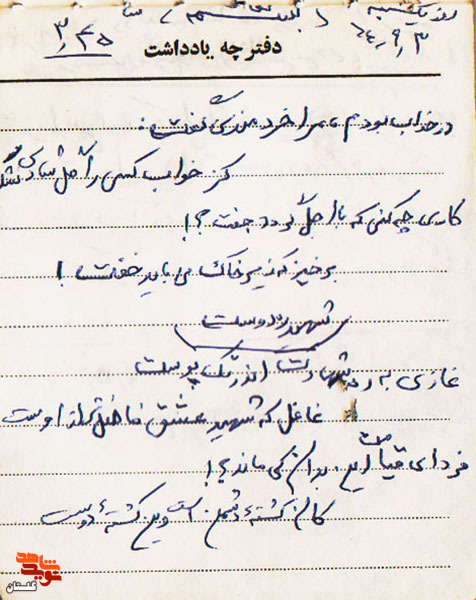 روز یکشنبه (بسمه تعالی)
۶۴/۹/۳
۳/۴۵
دفترچه یادداشت
در خواب بودم، مرا خردمندی گفت:
کز خواب کسی را گل شادی نشکفت
کاری چه کنی که با اجل گردد جفت؟!
برخیز که زیر خاک می باید خفت!
شهید دوست
غازی به ره شهادت اندر تک پوست
غافل که شهید عشق فاضلتر از اوست
فردای قیامت این بدان کی ماند؟!
کان کشته دشمن است و این کشته دوست
شاهد
نوید
گلستان